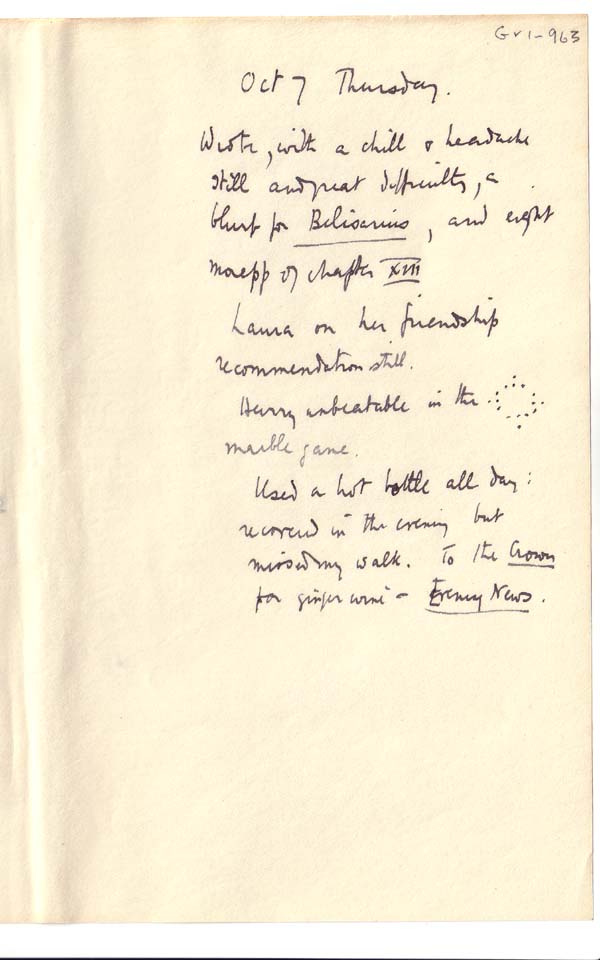 GV1-963
Oct 7 Thursday.
Wrote, with a chill & headache
still and great difficulty, a
blurb for Belisarius, and eight
more pp of chapter XVIII
Laura on her friendship
recommendation still.
Harry unbeatable in the
marble game.
Used a hot bottle all day:
recovered in the evening but
missed my walk. To the Crown
for ginger wine – Evening News.